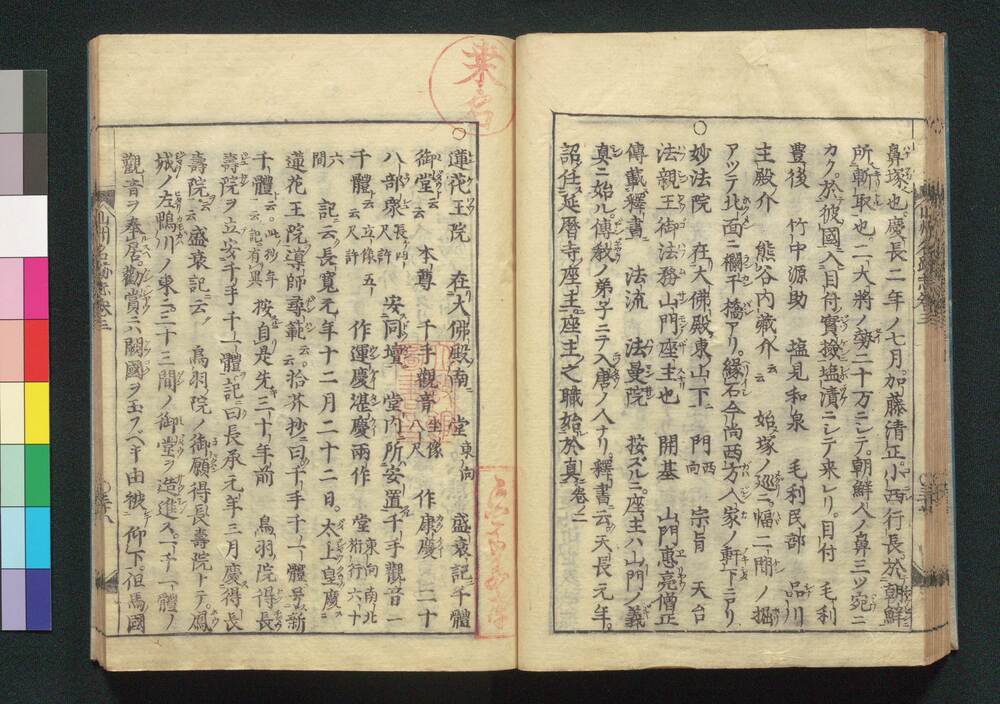 鼻塚也慶長二年ノ七月加藤清正小西行長於朝鮮
所斬取也二大將ノ勢二十万ニシテ朝鮮人ノ鼻三ツ宛ニ
カク於彼國入目付實撿塩漬ニシテ来レリ目付 毛利
豊後 竹中源助 塩見和泉 毛利民部 品川
主殿介 熊谷内藏介云 始塚ノ廻ニ幅二間ノ掘
アツテ北面ニ欄干橋アリ縁石今尚西方人家ノ軒下ニアリ
○
妙法院 在大佛殿東山下 門西向 宗旨 天台
法親王御法務山門座主也 開基 山門惠亮僧正
傳載釋書 法流 法曼院 按ズルニ座主ハ山門ノ義
真ニ始ル傳敎ノ弟子ニテ入唐ノ人ナリ釋書云天長元年
詔任延暦寺座主座主之職始於真卷ノ二
○
蓮花王院 在大佛殿南 堂東向 盛衰記千體
御堂云 本尊 千手觀音坐像八尺 作康慶 二十
八部衆長四尺許 安同壇 堂内所安置千手觀音一
千體云立像五尺許 作運慶湛慶兩作 堂東向南北桁行六十
六間 記云長寛元年十二月二十二日太上皇慶
蓮花王院導師尋範云拾芥抄曰千手千一體号新
千體云此抄年記有異 按自是先三十年前 鳥羽院得長
壽院ヲ立安千手千一體記曰長承元年三月慶得長
壽院云盛衰記云 鳥羽院ノ御願得長壽院トテ鳳
城ノ左鴨川ノ東ニ三十三間ノ御堂ヲ造進ス一千一體ノ
觀音ヲ奉居勸賞ニハ闕國ヲ玉フベキ由被仰下但馬國